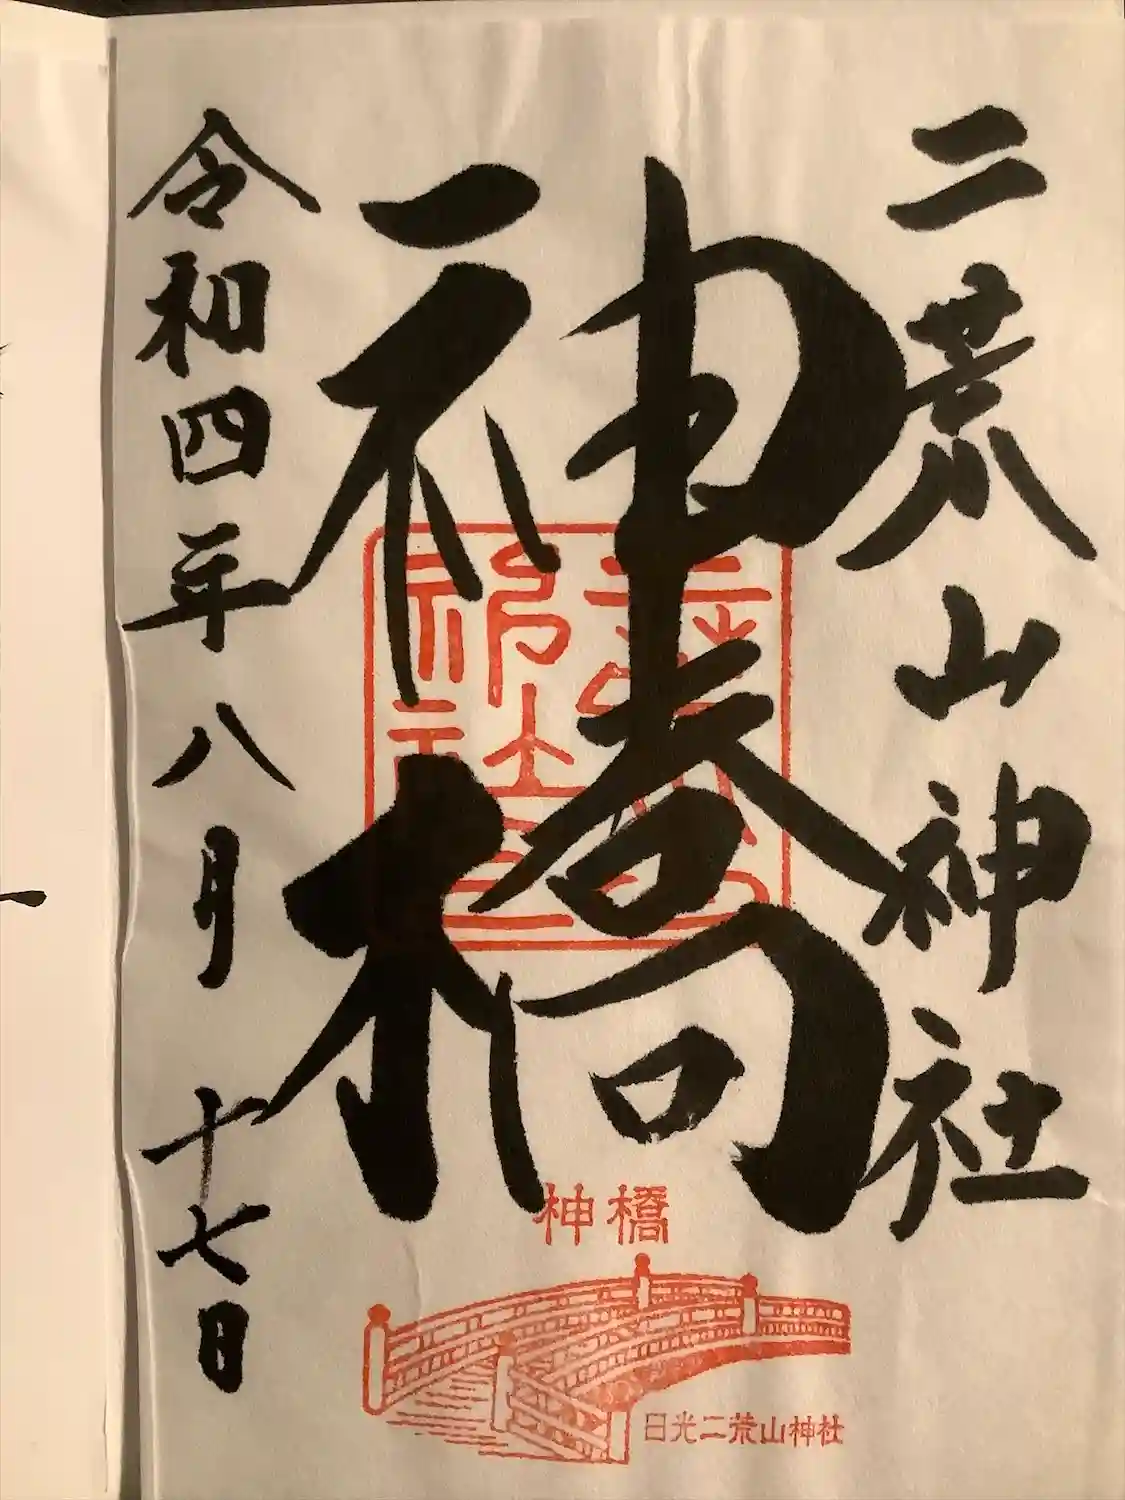 二荒山神社
神橋
令和四年八月十七日
二荒山神社
神橋
日光二荒山神社